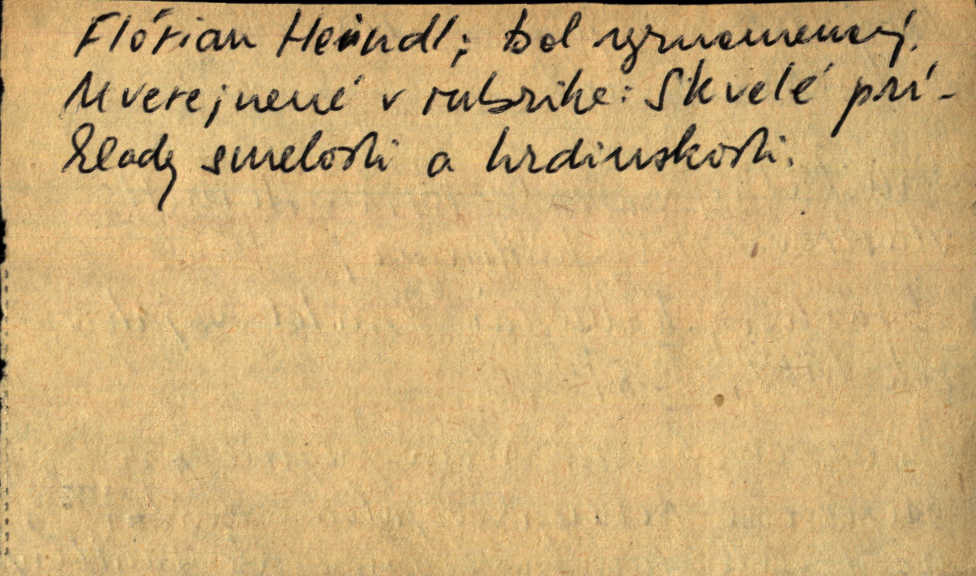 Flórian Heindl; bol vyznamenaný.
Uverejnené v rubrike: Skvelé prí-
klady smelosti a hrdinskosti.